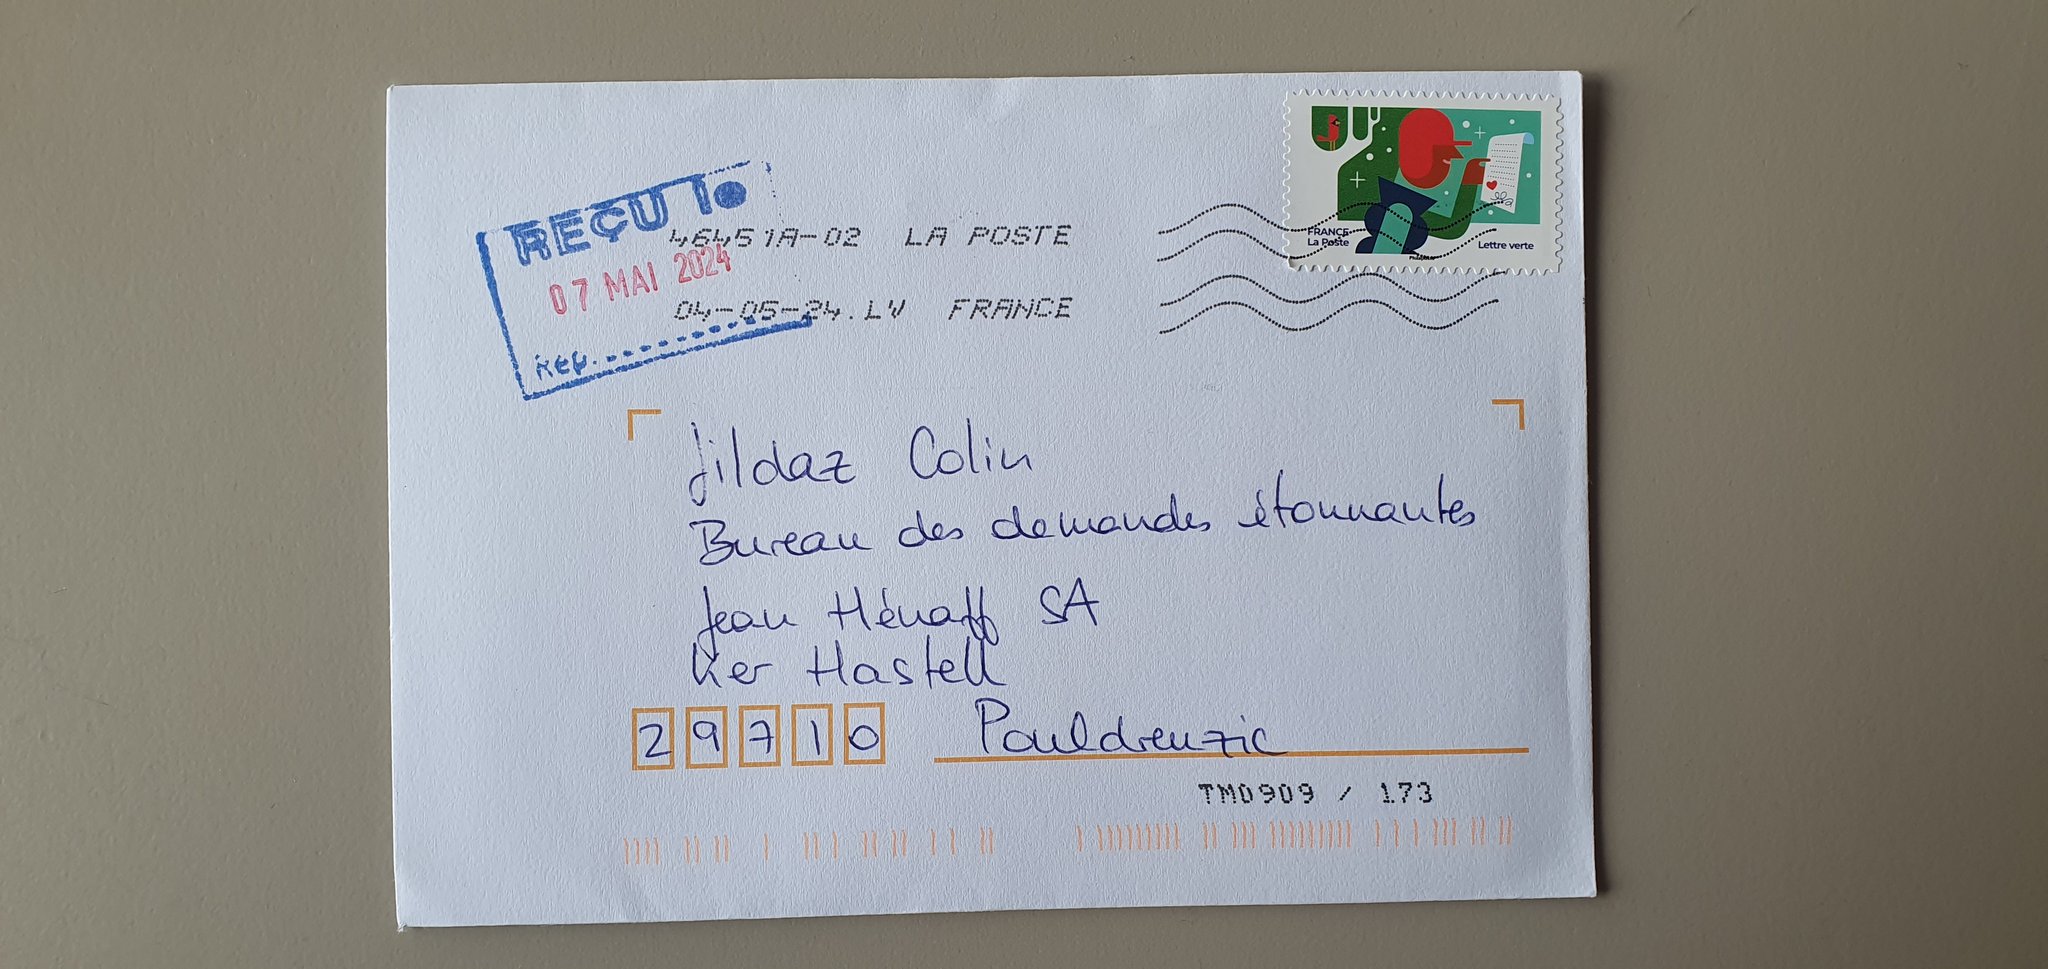 REÇU le
07 MAI 2024
Rép.
46451A-02 LA POSTE
04-05-24.LV FRANCE
FRANCE
La Poste
Lettre verte
Jildaz Colin
Bureau des demandes étonnantes
Jean Hénaff SA
Ker Hastell
29710 Pouldreuzic
TM0909 / 173